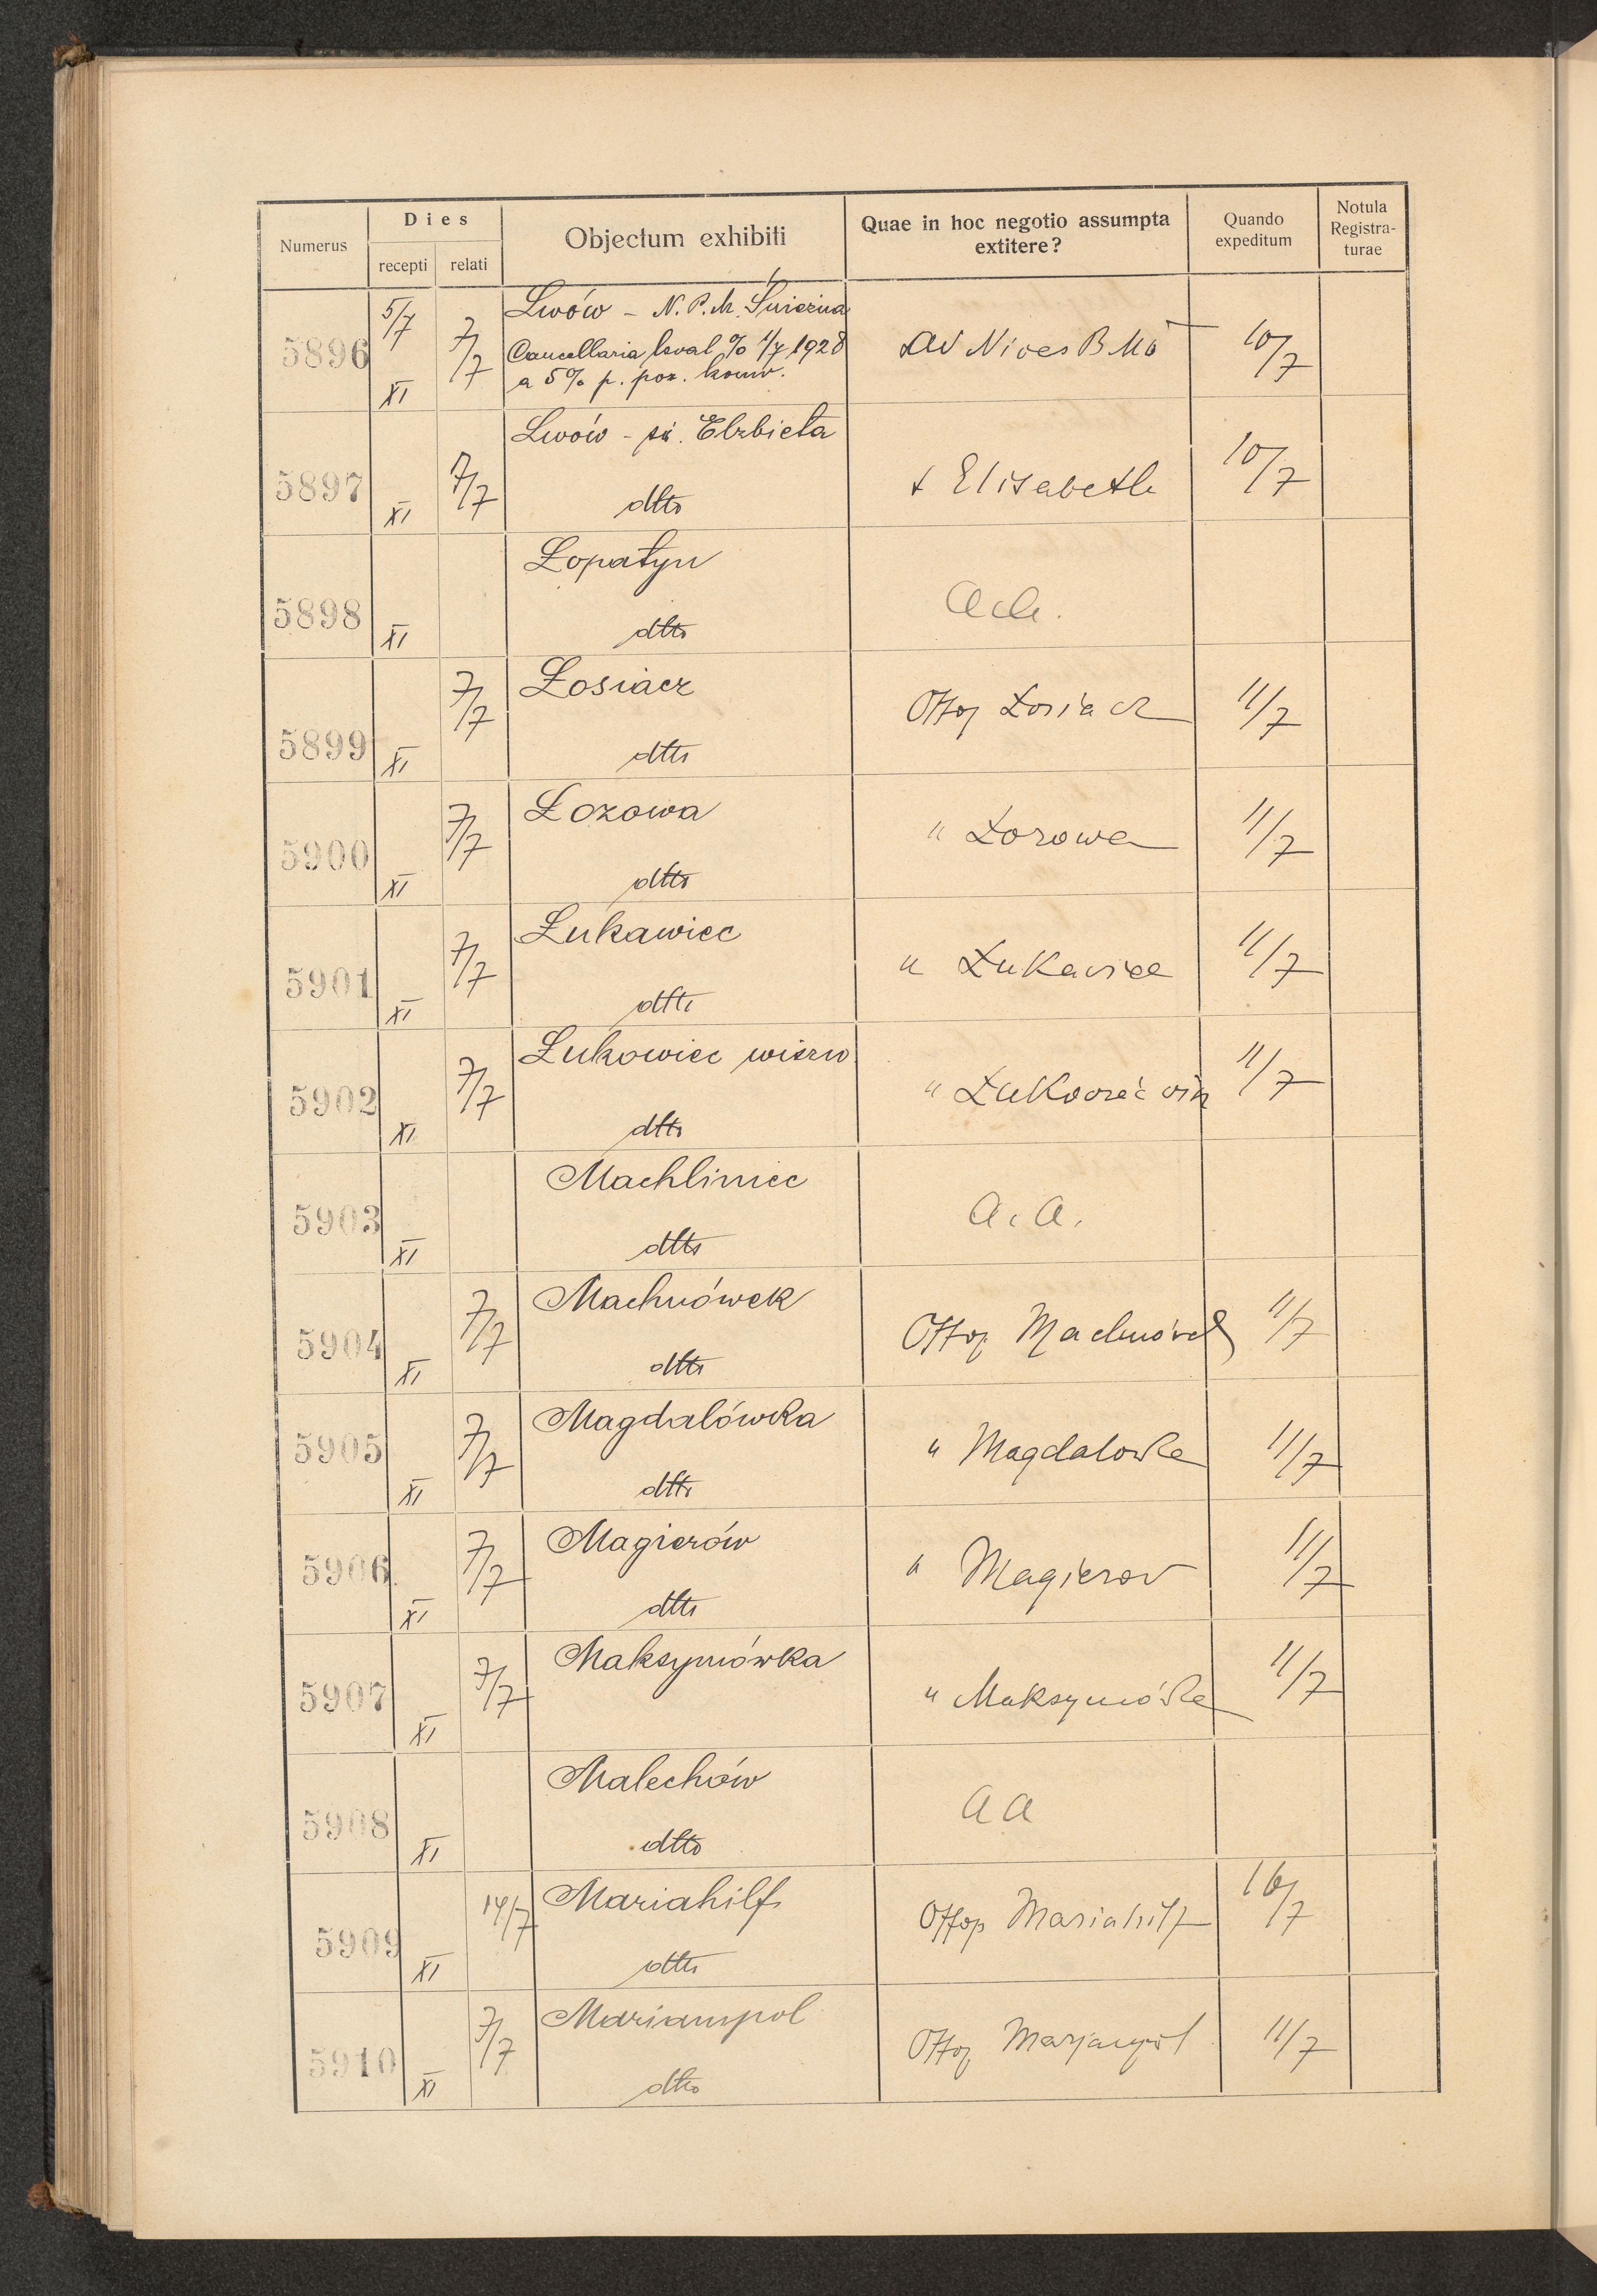 Numerus
Dies
recepti
relati
Objectum exhibiti
Quae in hoc negotio assumpta
extitere?
Quando
expeditum
Notula
Registra-
turae
5896 5/7 XI 7/7 Lwów - N. P. M. Śnieżna
Cancellaria kwal % 1/7 1928
a 5% p. poż. konw.
Ad Nives BM 10/7
5897 XI 7/7 Lwów - św. Elżbieta
dtto
Elisabeth 10/7
5898 XI Łopatyn
dtto
5899 XI 7/7 Łosiacz
dtto
Offoz Łosiacz 11/7
5900 XI 7/7 Łozowa
dtto
" Łozowa 11/7
5901 XI 7/7 Łukawiec
dtto
" Łukawiec 11/7
5902 XI 7/7 Łukowiec wiszn
dtto
" Łukowiec 11/7
5903 XI Machliniec
dtto
a. a.
5904 XI 7/7 Machnówek
dtto
Offoz Machnówek 11/7
5905 XI 7/7 Magdalówka
dtto
" Magdalowka 11/7
5906 XI 7/7 Magierów
dtto
" Magierow 11/7
5907 XI 7/7 Maksymówka
" Maksymówka 11/7
5908 XI Malechów
dtto
a a
5909 XI 14/7 Mariahilf
dtto
Offop Mariahilf 16/7
5910 XI 7/7 Mariampol
dtto
Offoz Marjampol 11/7